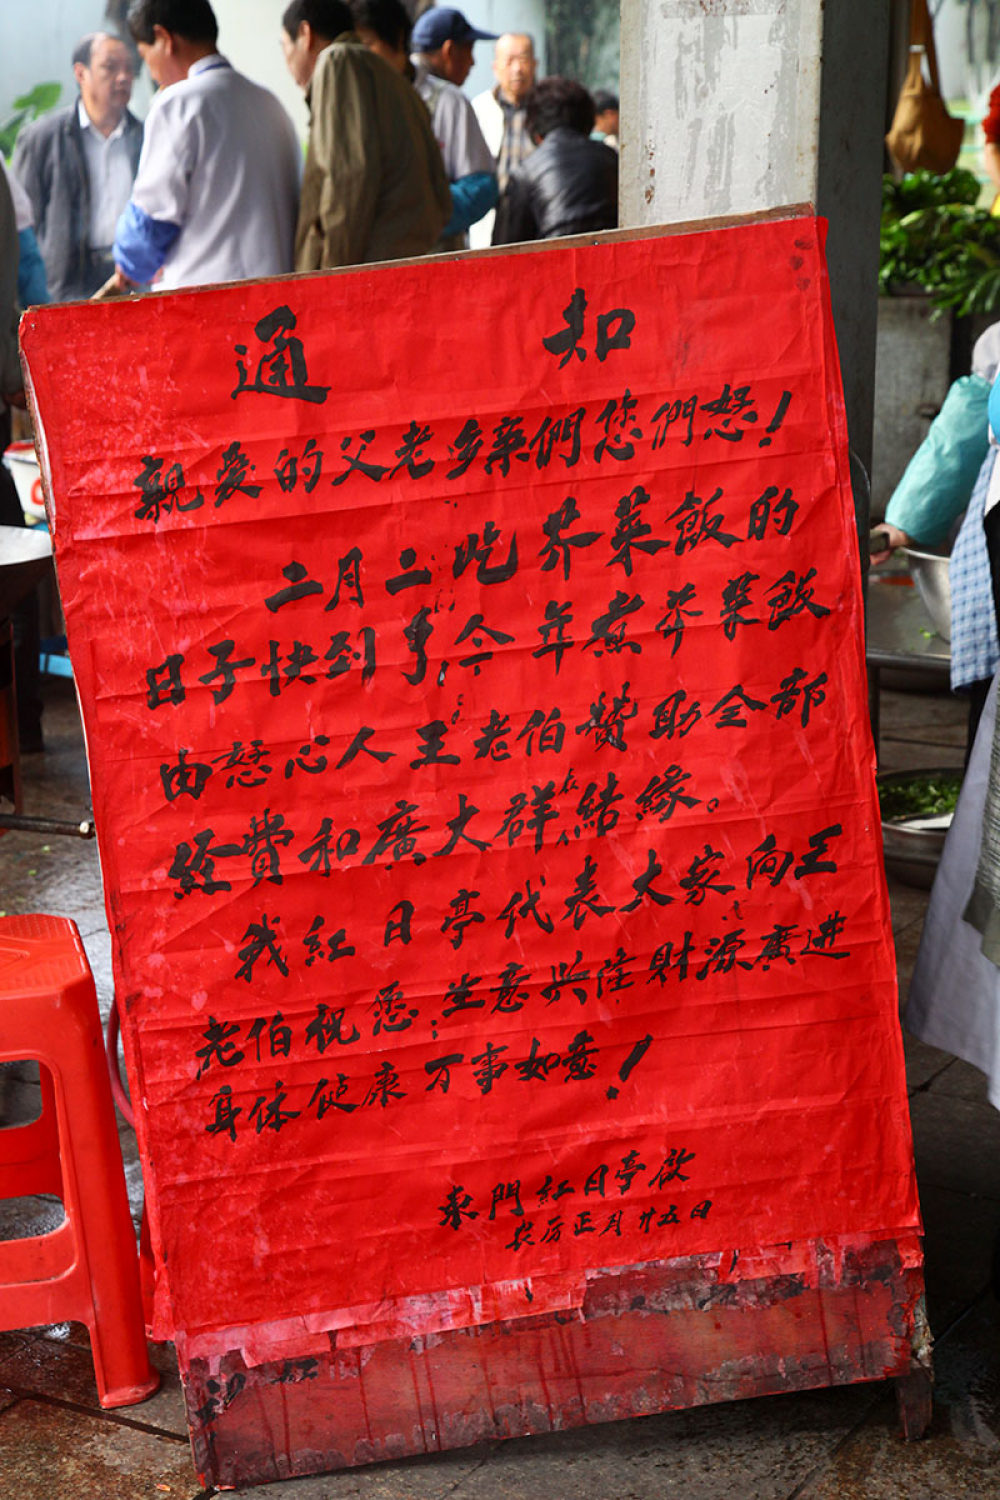 通知
親爱的父老乡亲們您們好！
二月二吃芥菜飯的
日子快到了,今年煮芥菜飯
由好心人王老伯赞助全部
经費和廣大群在結緣。
我紅日亭代表大家向王
老伯祝愿:生意兴隆財源廣进
身体健康万事如意！
東門紅日亭啟
农历正月廿五日